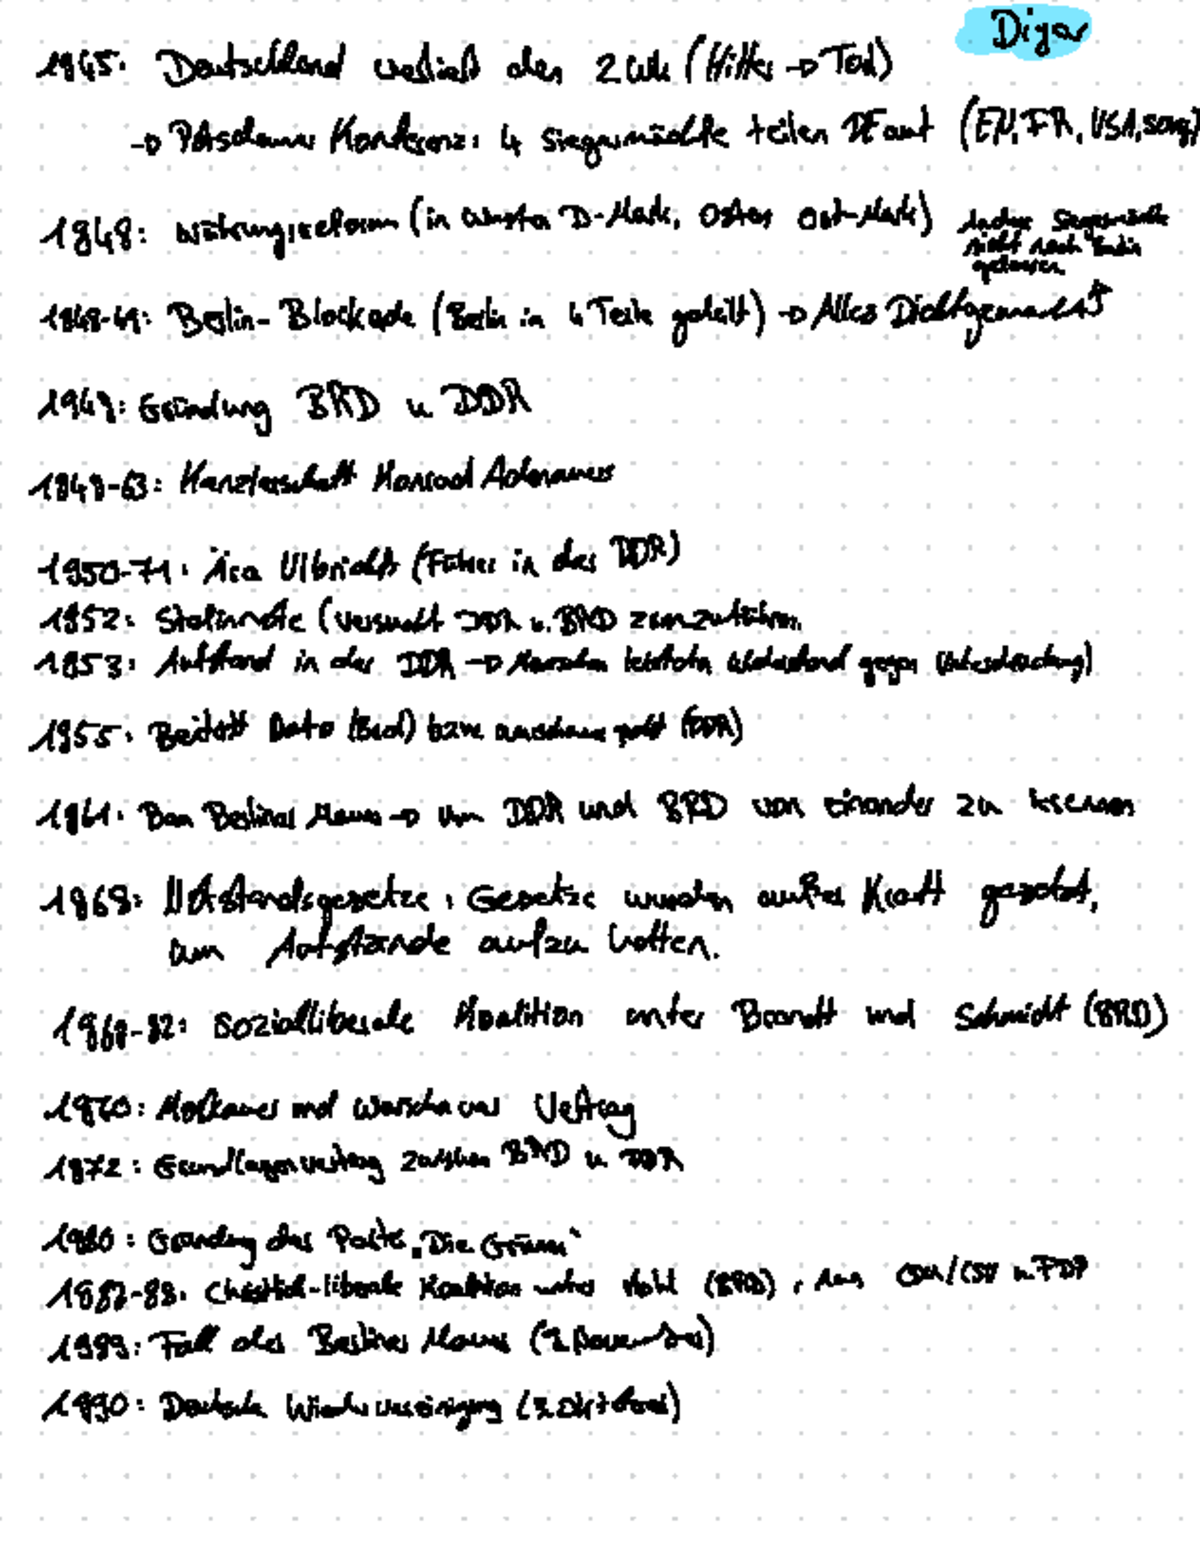 Diyar
1945: Deutschland verließ den 2 Wk (Hitler → Tod)
→ Potsdamer Konferenz: 4 Siegermächte teilen DE auf (EN, FR, USA,
1948: Währungsreform (in Westen D-Mark, Osten Ost-Mark)
Siegermächte
nicht nach Berlin
gelassen.
1948-49: Berlin-Blockade (Berlin in 4 Teile geteilt) → Alles Dichtgemacht
1949: Gründung BRD u DDR
1949-63: Kanzlerschaft Konrad Adenauers
1950-71: Ära Ulbricht (Führer in der DDR)
1952: Stalinnote (versucht DDR u. BRD
1953: Aufstand in der DDR → Menschen leisteten Widerstand gegen Unterdrückung)
1955: Beitritt Nato (Brd) bzw warschauer pakt (DDR)
1961: Bau Berliner Mauer → um DDR und BRD von einander zu trennen
1968: Notstandsgesetze: Gesetze wurden außer Kraft gesetzt,
um Aufstände aufzu halten.
1969-82: Sozialliberale Koalition unter Brandt und Schmidt (BRD)
1970: Moskauer und Warschauer Vertrag
1972: Grundlagenvertrag zwischen BRD u DDR
1980: Gründung der Partei „Die Grünen“
Christlich-liberale Koalition unter Kohl (BRD), Aus CDU/CSU u. FDP
1989: Fall der Berliner Mauer (9 November)
1990: Deutsche Wiedervereinigung (3. Oktober)